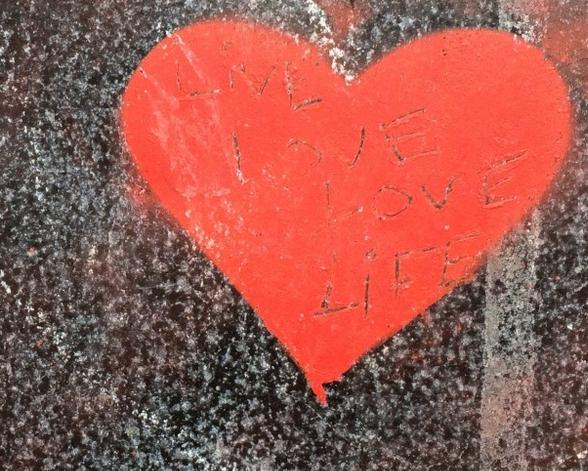 LIVE
LOVE
LOVE
LIFE